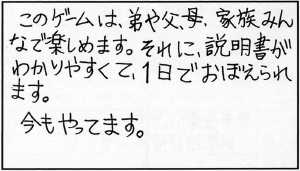 このゲームは、弟や父、母、家族みん
なで楽しめます。それに、説明書が
わかりやすくて、1日でおぼえられ
ます。
今もやってます。